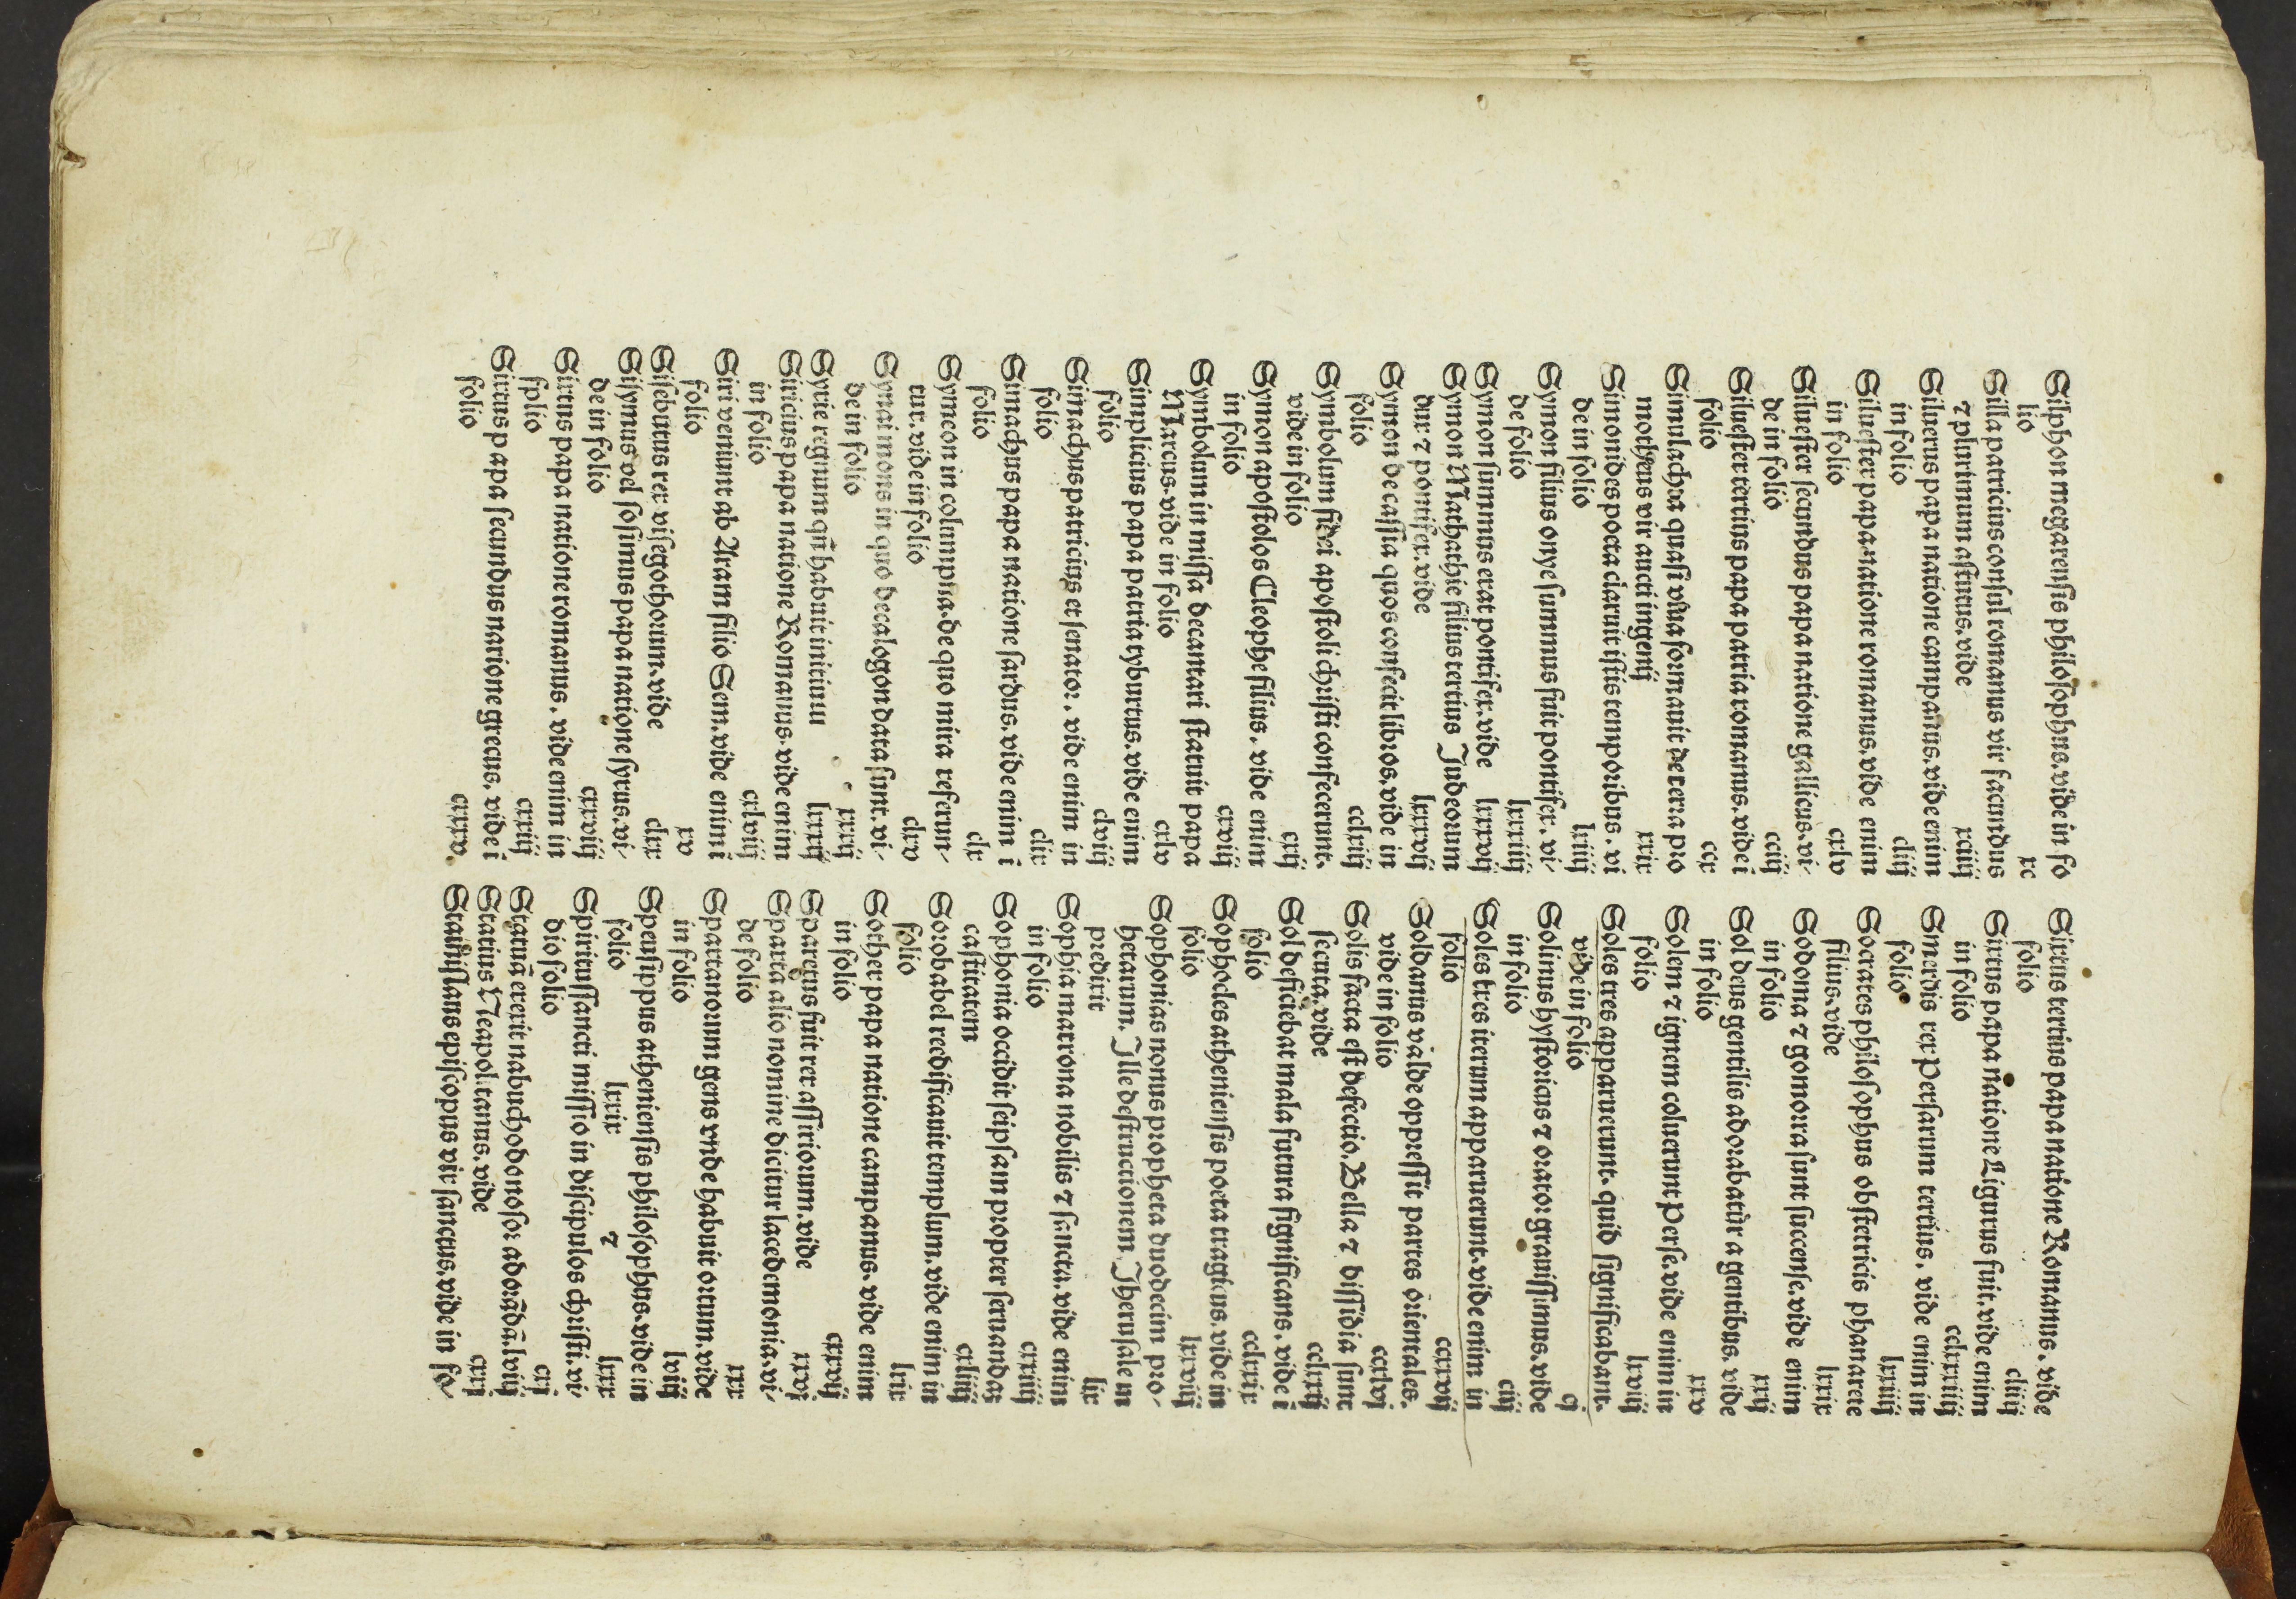 Silphon megarensis philosophus. vide in fo
lio xc
Silla patricius consul romanus vir facundus
⁊ plurimum astutus. vide xciiij
Siluerus papa natione campanus. vide enim
in folio cliij
Siluester papa. natione romanus. vide enim
in folio cxlv
Siluester secundus papa natione gallicus. vi-
de in folio cciij
Siluester tertius papa patria romanus. vide ī
folio ccx
Simulachra quasi viua formauit de terra pro
motheus vir aucti ingenij xxix
Simonides poeta claruit istis temporibus. vi
de in folio lxiiij
Symon filius onye summus fuit pontifex. vi-
de folio lxxxiiij
Symon summus erat pontifex. vide lxxxvij
Symon Mathathie filius tertius Judeorum
dux ⁊ pontifex. vide lxxxvij
Symon de cassia quos confecit libros. vide in
folio cclxiij
Symbolum fidei apostoli christi confecerunt.
vide in folio cxij
Symon apostolos Cleophe filius. vide enim
in folio cxviij
Symbolum in missa decantari statuit papa
Marcus. vide in folio cxlv
Simplicius papa patria tyburtus. vide enim
folio clviij
Simachus patricius et senator. vide enim in
folio clix
Simachus papa natione sardus. vide enim ī
folio clx
Symeon in columpna. de quo mira referun-
tur. vide in folio clxv
Synai mons in quo decalogon data sunt. vi-
de in folio xxxij
Syrie regnum qn̄ habuit initium lxxxij
Siricius papa natione Romanus. vide enim
in folio cxlviij
Siri venium̄t ab Aram filio Sem. vide enim ī
folio xv
Sisebutus rex visegothorum. vide clxx
Sisymus vel sosimus papa natione syrus. vi-
de in folio cxxviij
Sixtus papa natione romanus. vide enim in
folio cxxiij
Sixtus papa secundus natione grecus. vide ī
folio cxxxv
Sixtus tertius papa natione Romanus. vide
folio cliij
Sixtus papa natione Ligurus fuit. vide enim
in folio cclxxxiiij
Smerdis rex Persarum tertius. vide enim in
folio lxxiiij
Socrates philosophus obstetricis phanarete
filius. vide lxxix
Sodoma ⁊ gomora sunt succense. vide enim
in folio xxij
Sol deus gentilis adorabatur a gentibus. vide
in folio xxv
Solem ⁊ ignem coluerunt Perse. vide enim in
folio lxviij
Soles tres apparuerunt. quid significabant.
vide in folio cj
Solinus hystoricus ⁊ orator grauissimus. vide
in folio ciij
Soles tres iterum apparuerunt. vide enim in
folio ccxxvij
Soldanus valde oppressit partes orientales.
vide in folio ccxlvj
Solis facta est defectio. Bella ⁊ dissidia sunt
secuta. vide cclxxij
Sol deficiebat mala futura significans. vide ī
folio cclxxix
Sophocles atheniensis poeta tragicus. vide in
folio lxxviij
Sophonias nonus propheta duodecim pro-
hetarum. Ille destructionem Jherusale in
predixit lix
Sophia matrona nobilis ⁊ sancta. vide enim
in folio cxxiiij
Sophonia occidit seipsam propter seruandaȝ
castitatem cxliiij
Sorobabel reedificauit templum. vide enim in
folio lxix
Sother papa natione campanus. vide enim
in folio cxxvij
Sparetus fuit rex assiriorum. vide xxvj
Sparta alio nomine dicitur lacedemonia. vi-
de folio xxx
Spartanorum gens vnde habuit ortum. vide
in folio lviij
Speusippus atheniensis philosophus. vide in
folio lxxix ⁊ lxxx
Spiritussancti missio in discipulos christi. vi-
dio folio cxj
Statuā erexit nabuchodonosor adorādā. lviij
Statius Neapolitanus. vide cxij
Stanislaus episcopus vir sanctus. vide in fo-